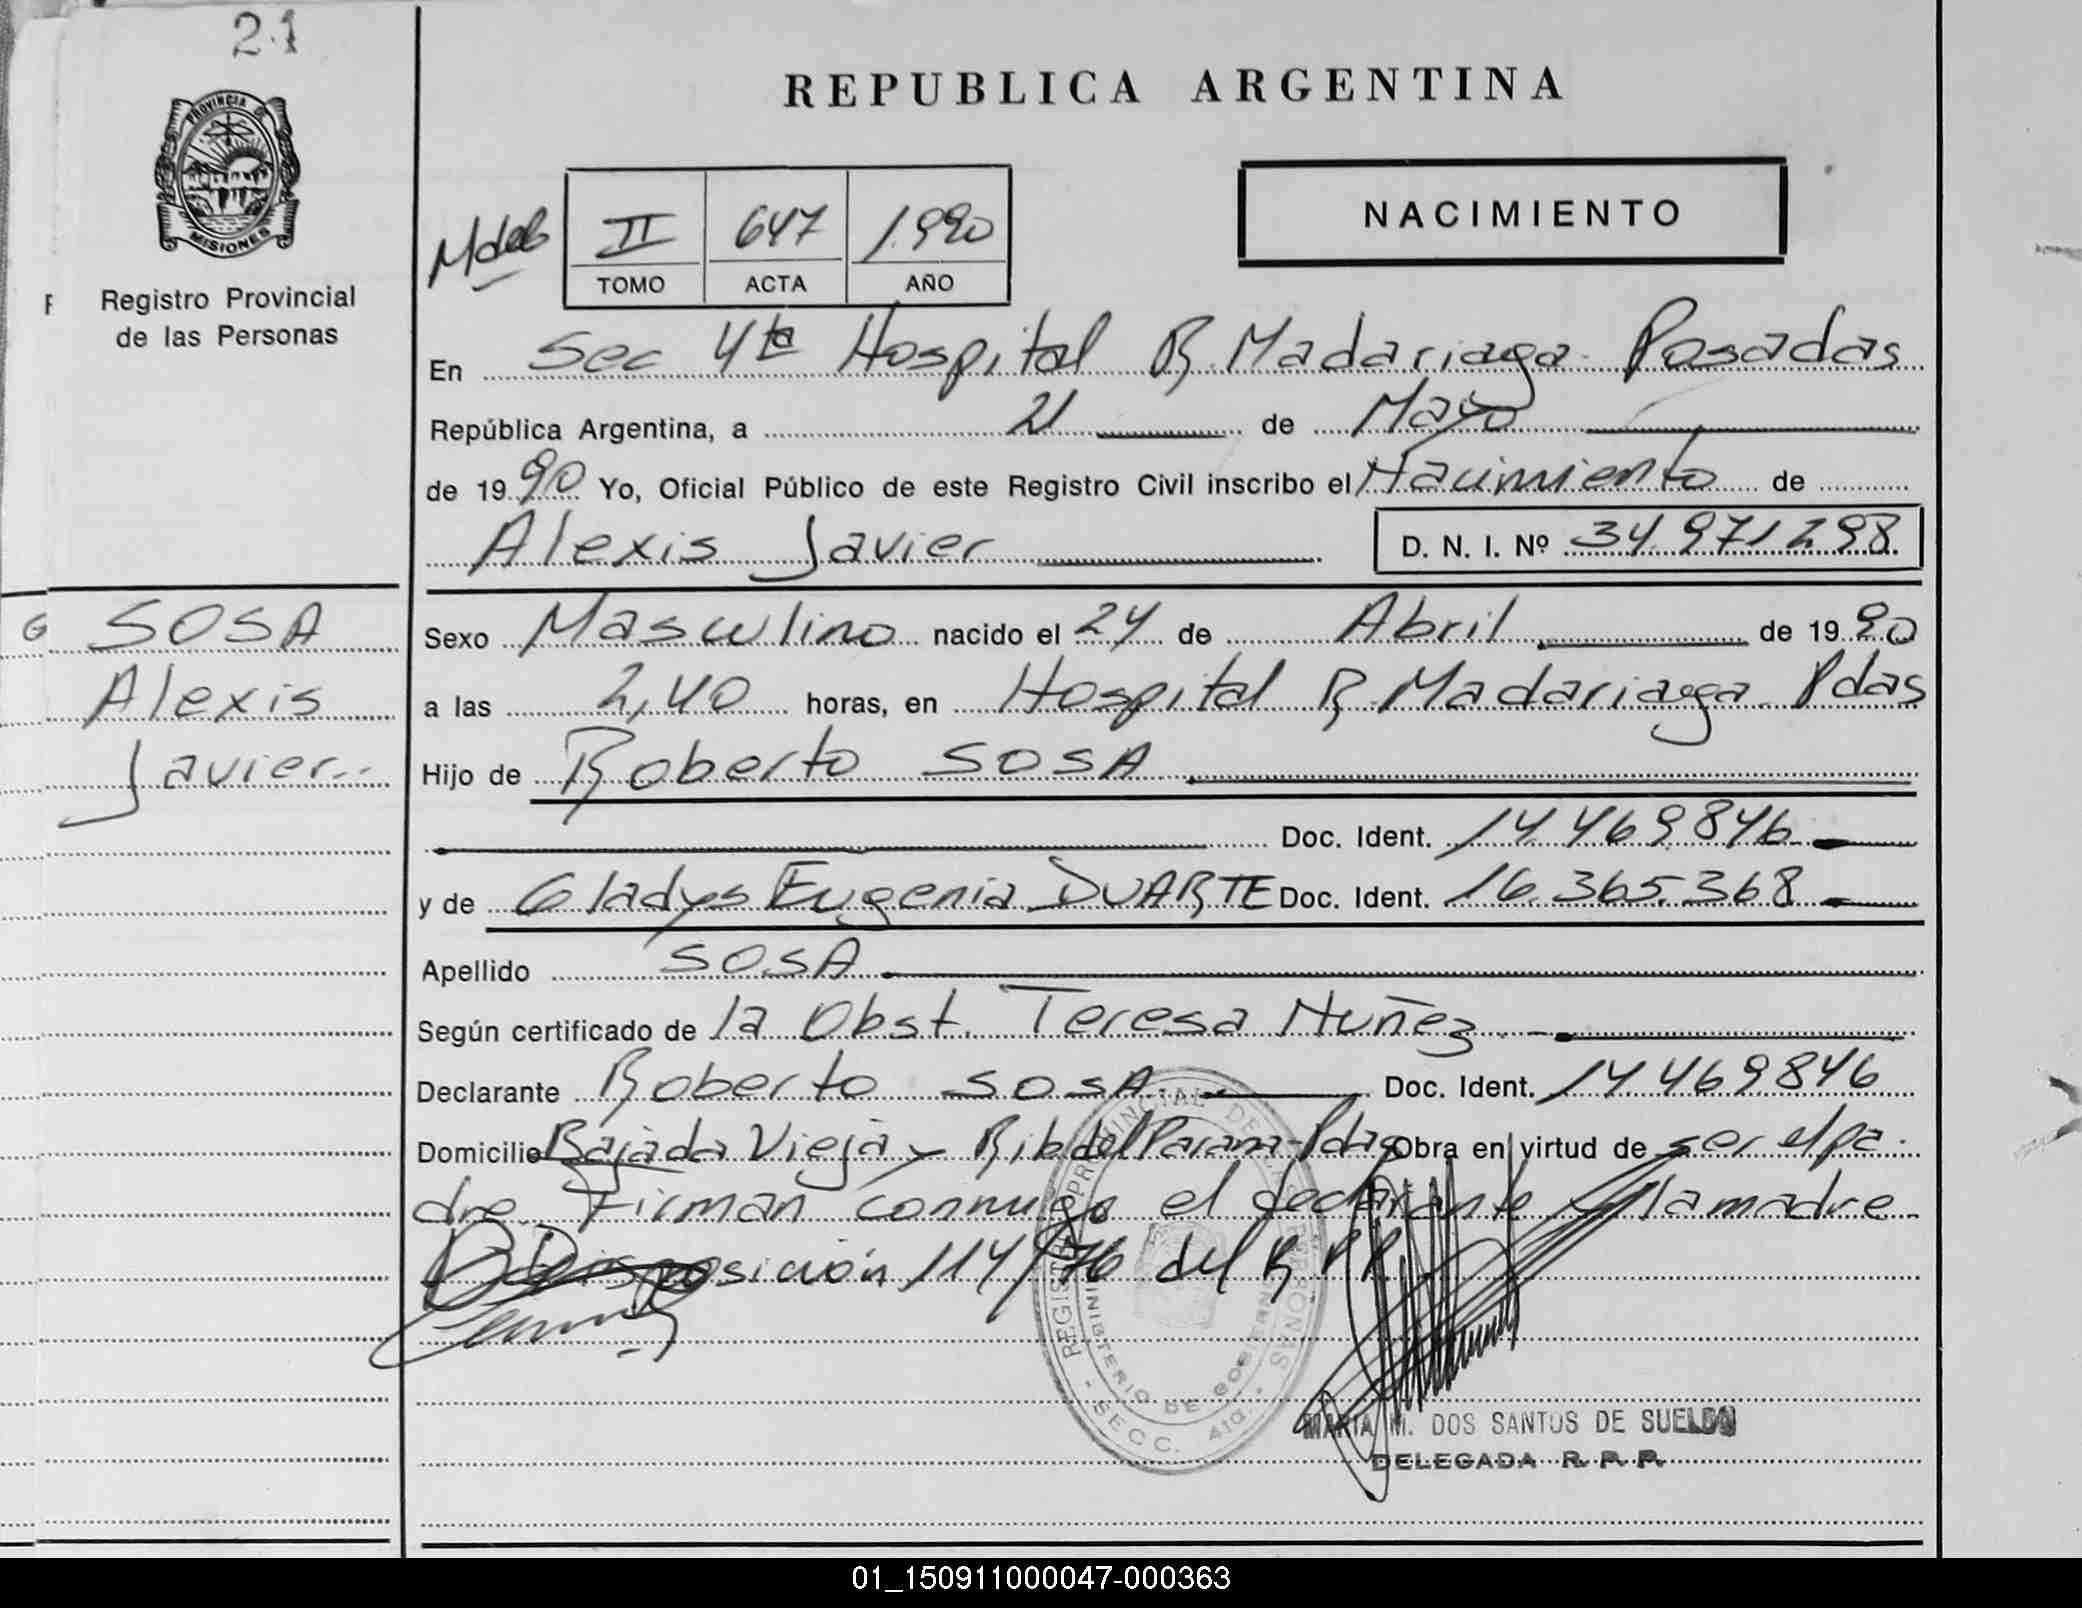 21
PROVINCIA DE
MISIONES
Registro Provincial
de las Personas
SOSA
Alexis
Javier
REPUBLICA ARGENTINA
II 647 1990
TOMO ACTA AÑO
NACIMIENTO
En Sec 4ta Hospital R. Madariaga. Posadas
República Argentina, a 21 de Mayo
de 1990 Yo, Oficial Público de este Registro Civil inscribo el Nacimiento de
Alexis Javier D. N. I. Nº 34.971.298
Sexo Masculino nacido el 24 de Abril de 1990
a las 2,40 horas, en Hospital R. Madariaga. Pdas
Hijo de Roberto SOSA
Doc. Ident. 14.469846
y de Gladys Eugenia DUARTE Doc. Ident. 16.365.368
Apellido SOSA
Según certificado de la Obst. Teresa Nuñez
Declarante Roberto SOSA Doc. Ident. 14.469846
Domicilio Bajada Vieja y Rib del Parana-Pdas Obra en virtud de ser el pa
dre. Firman conmigo el declarante y la madre
Disposición 114/76 del R P P.
REGISTRO PROVINCIAL DE LAS PERSONAS
MINISTERIO DE GOBIERNO
SECC. 4ta.
MARIA M. DOS SANTOS DE SUELDO
DELEGADA R. P. P.
01_150911000047-000363